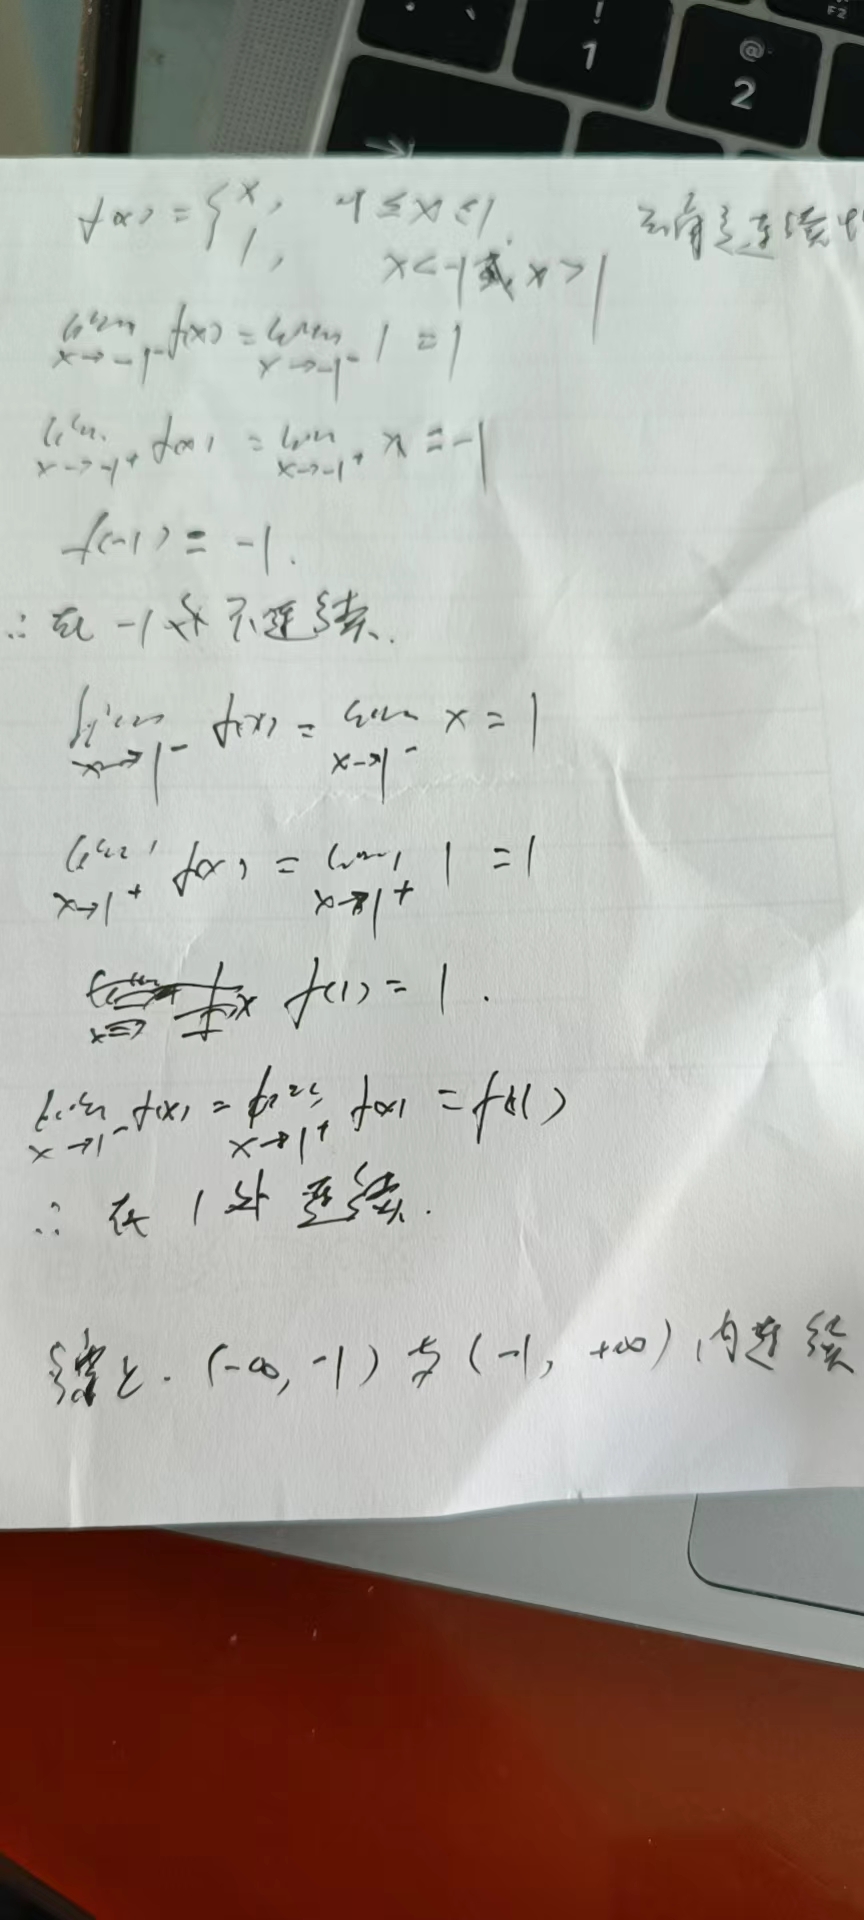 ! 1
@ 2
F2
f(x) = { x, -1 ≤ x ≤ 1
1, x < -1 或 x > 1
连续
lim x→-1⁻ f(x) = lim x→-1⁻ 1 = 1
lim x→-1⁺ f(x) = lim x→-1⁺ x = -1
f(-1) = -1.
∴ 在 -1 处不连续.
lim x→1⁻ f(x) = lim x→1⁻ x = 1
lim x→1⁺ f(x) = lim x→1⁺ 1 = 1
f(1) = 1.
lim x→1⁻ f(x) = lim x→1⁺ f(x) = f(1)
∴ 在 1 处 连续.
综上. (-∞, -1) 与 (-1, +∞) 内连续